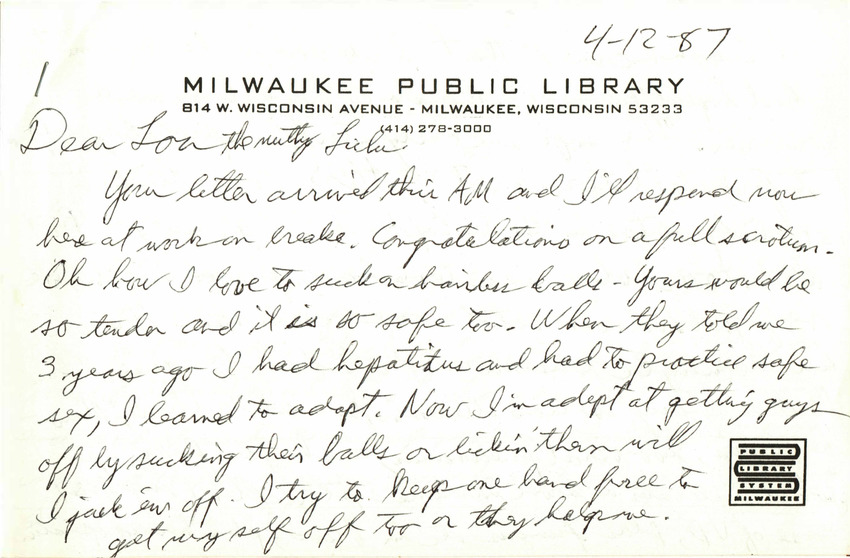 4-12-87
1
MILWAUKEE PUBLIC LIBRARY
814 W. WISCONSIN AVENUE - MILWAUKEE, WISCONSIN 53233
(414) 278-3000
Dear Lou the nutty
Your letter arrived this AM and I'll respond now
here at work on breake. Congratulations on a full scrotum -
Oh how I love to suck on hairless balls - Yours would be
so tender and it is so safe too. When they told me
3 years ago I had hepatitus and had to practice safe
sex, I learned to adapt. Now I'm adept at getting guys
off by sucking their balls or lickin' them will
I jack 'em off. I try to keep one hand free to
get my self off too or they help me.
PUBLIC
LIBRARY
SYSTEM
MILWAUKEE